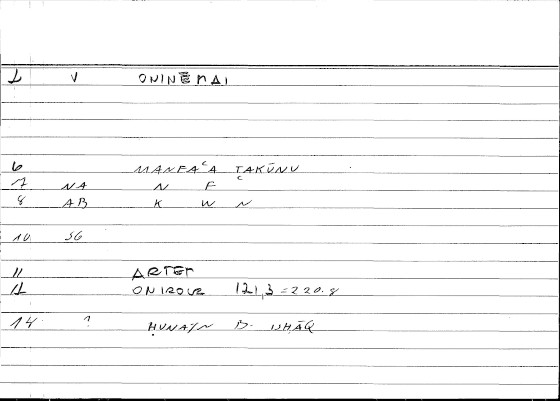 1 V ONINĒMAI
6 MANFAʿA TAKŪNU
7 NA N F ʿ
8 AB K W N
10 SG
11 ARTEF
12 ONIROCR 121,3 = 220.8
14 ? ḤUNAYN B. ISḤĀQ